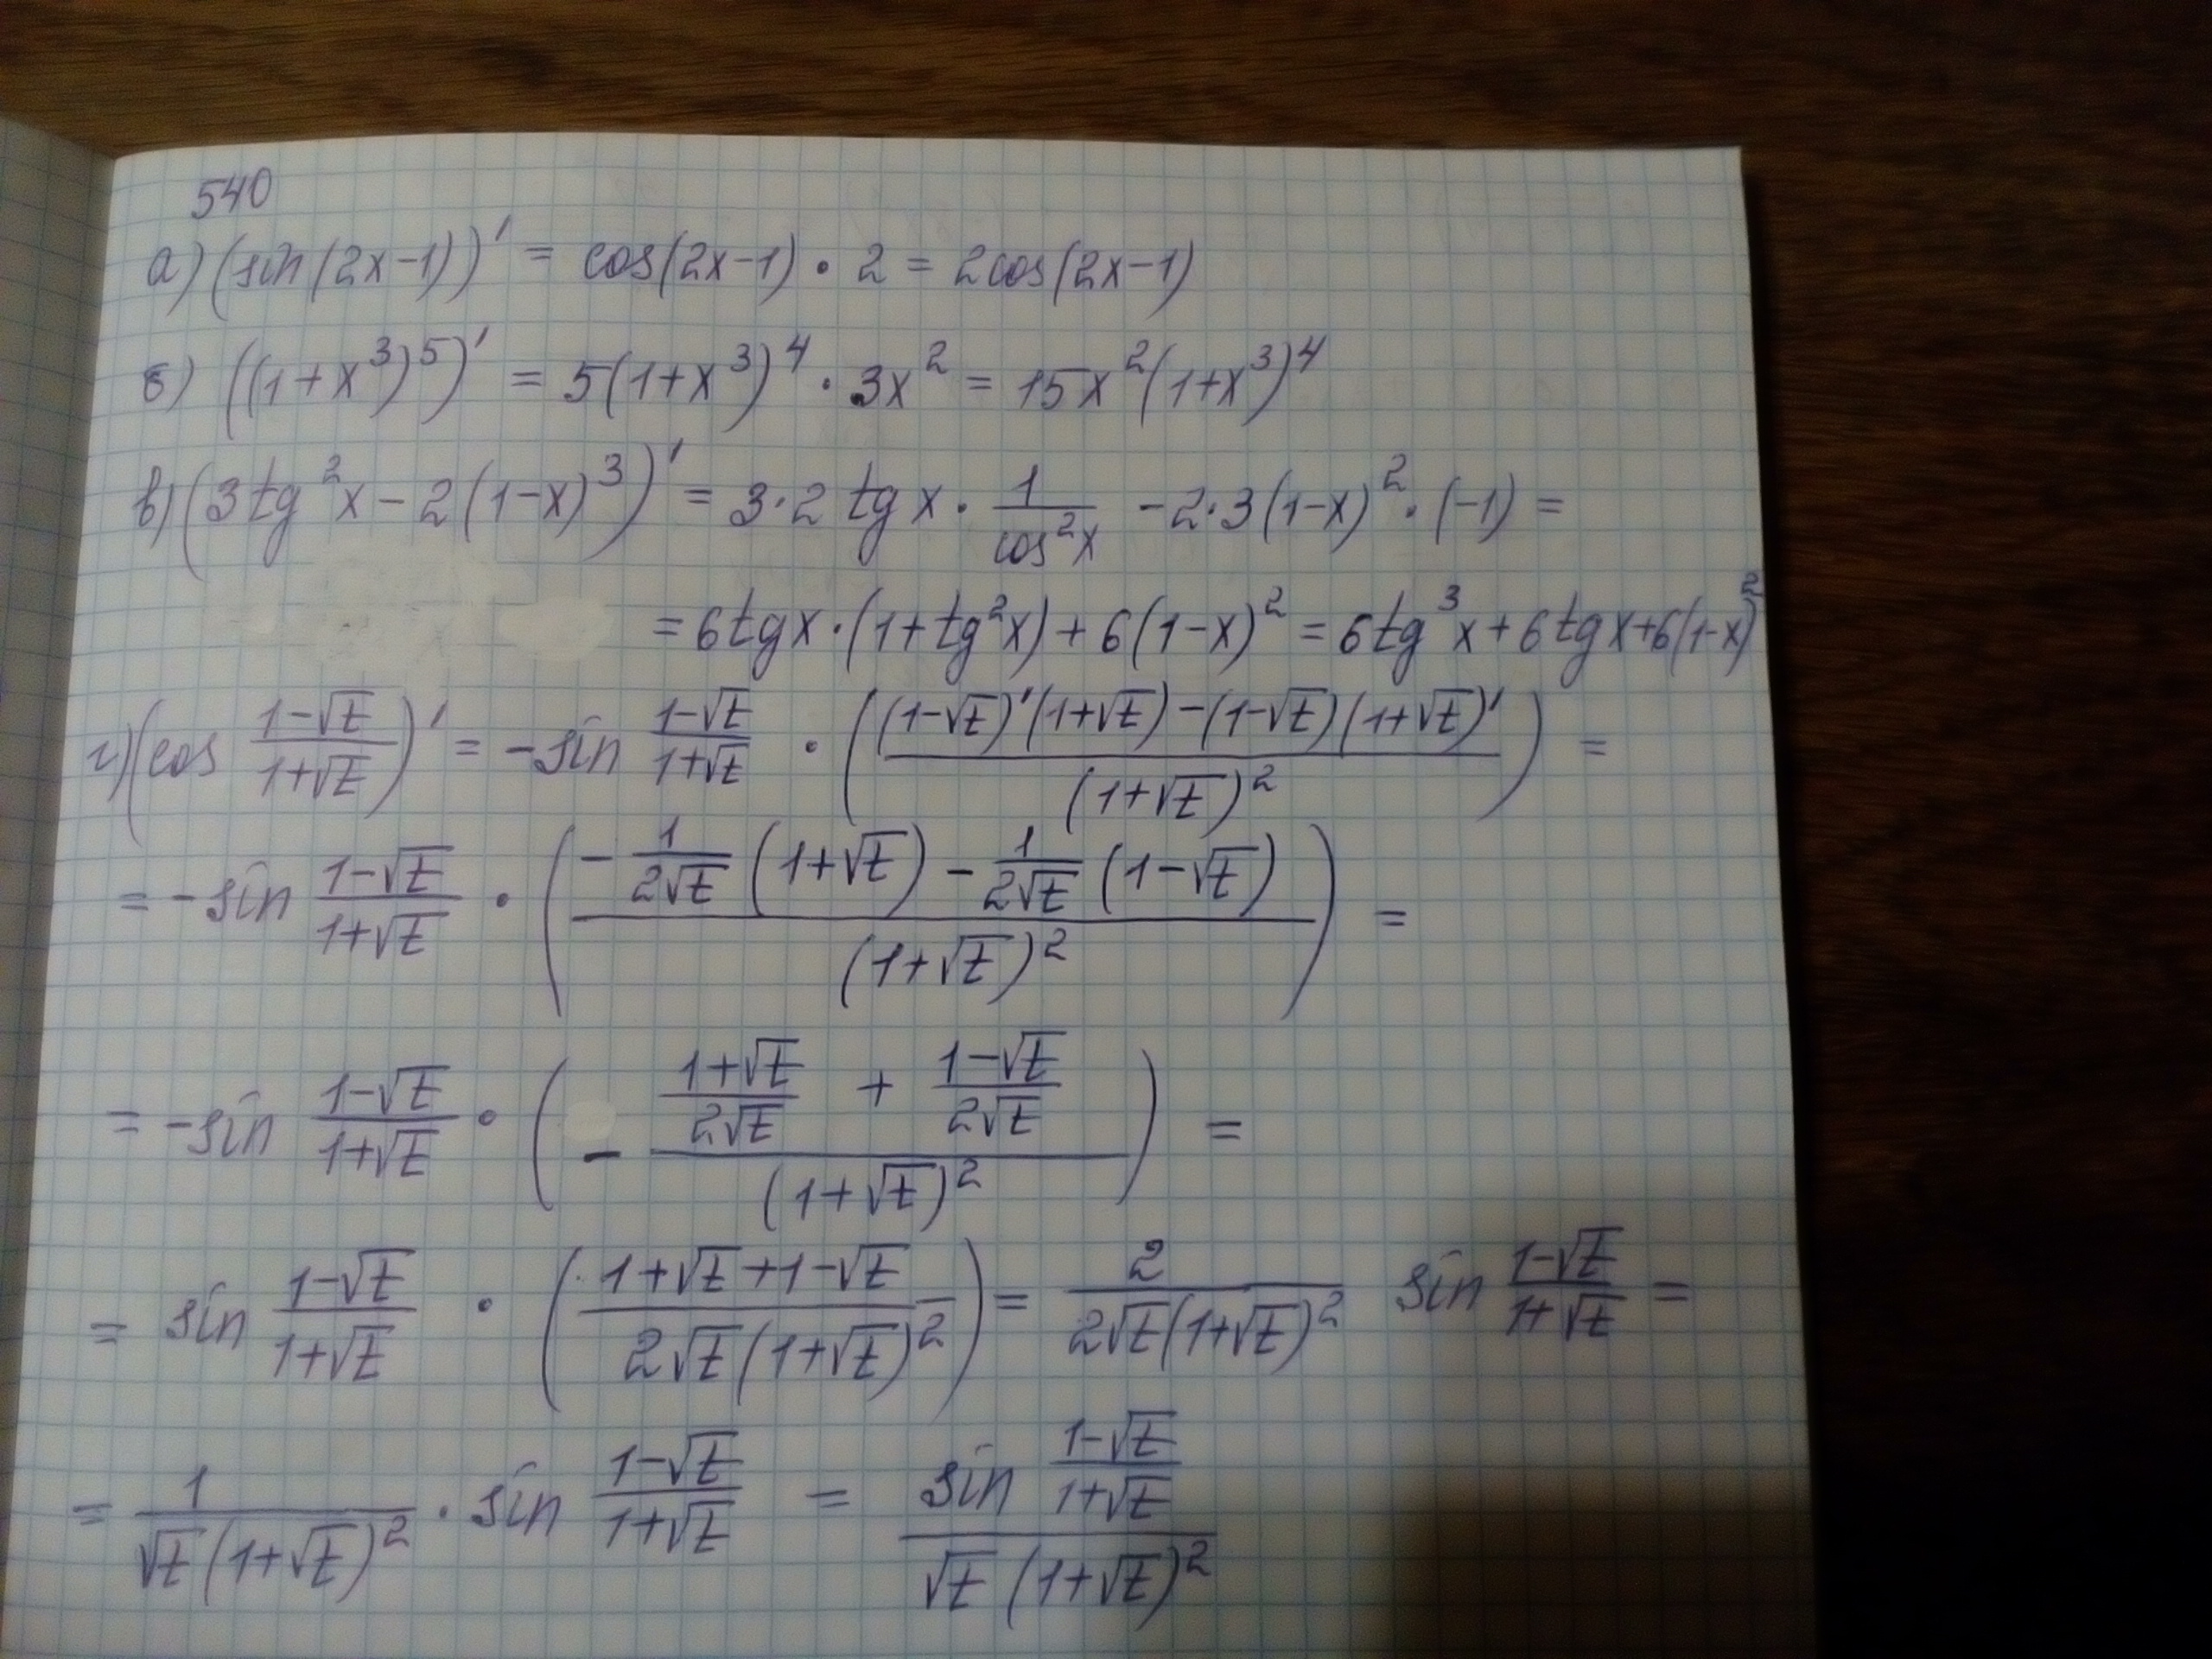 540
а) (sin(2x-1))' = cos(2x-1) · 2 = 2cos(2x-1)
б) ((1+x³)⁵)' = 5(1+x³)⁴ · 3x² = 15x²(1+x³)⁴
в) (3tg²x - 2(1-x)³)' = 3·2 tg x · 1/cos²x - 2·3(1-x)² · (-1) =
= 6tgx·(1+tg²x) + 6(1-x)² = 6tg³x + 6tgx + 6(1-x)²
г) (cos (1-√t)/(1+√t))' = -sin (1-√t)/(1+√t) · (((1-√t)'(1+√t) - (1-√t)(1+√t)')/(1+√t)²) =
= -sin (1-√t)/(1+√t) · ((-1/(2√t) (1+√t) - 1/(2√t) (1-√t))/(1+√t)²) =
= -sin (1-√t)/(1+√t) · (- ((1+√t)/(2√t) + (1-√t)/(2√t))/(1+√t)²) =
= sin (1-√t)/(1+√t) · ((1+√t+1-√t)/(2√t(1+√t)²)) = 2/(2√t(1+√t)²) sin (1-√t)/(1+√t) =
= 1/(√t(1+√t)²) · sin (1-√t)/(1+√t) = (sin (1-√t)/(1+√t))/(√t(1+√t)²)